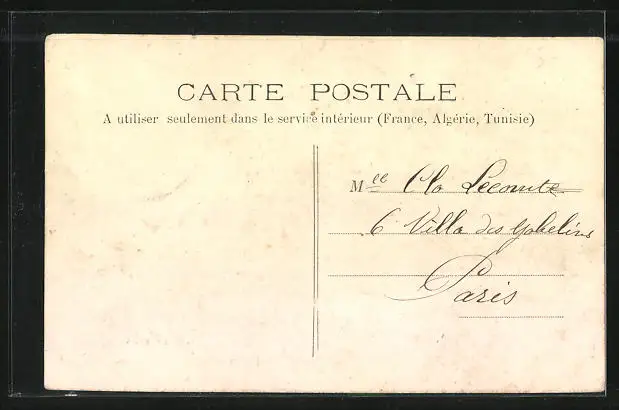 CARTE POSTALE
A utiliser seulement dans le service intérieur (France, Algérie, Tunisie)
Mlle Clo Lecomte
6 Villa des Gobelins
Paris